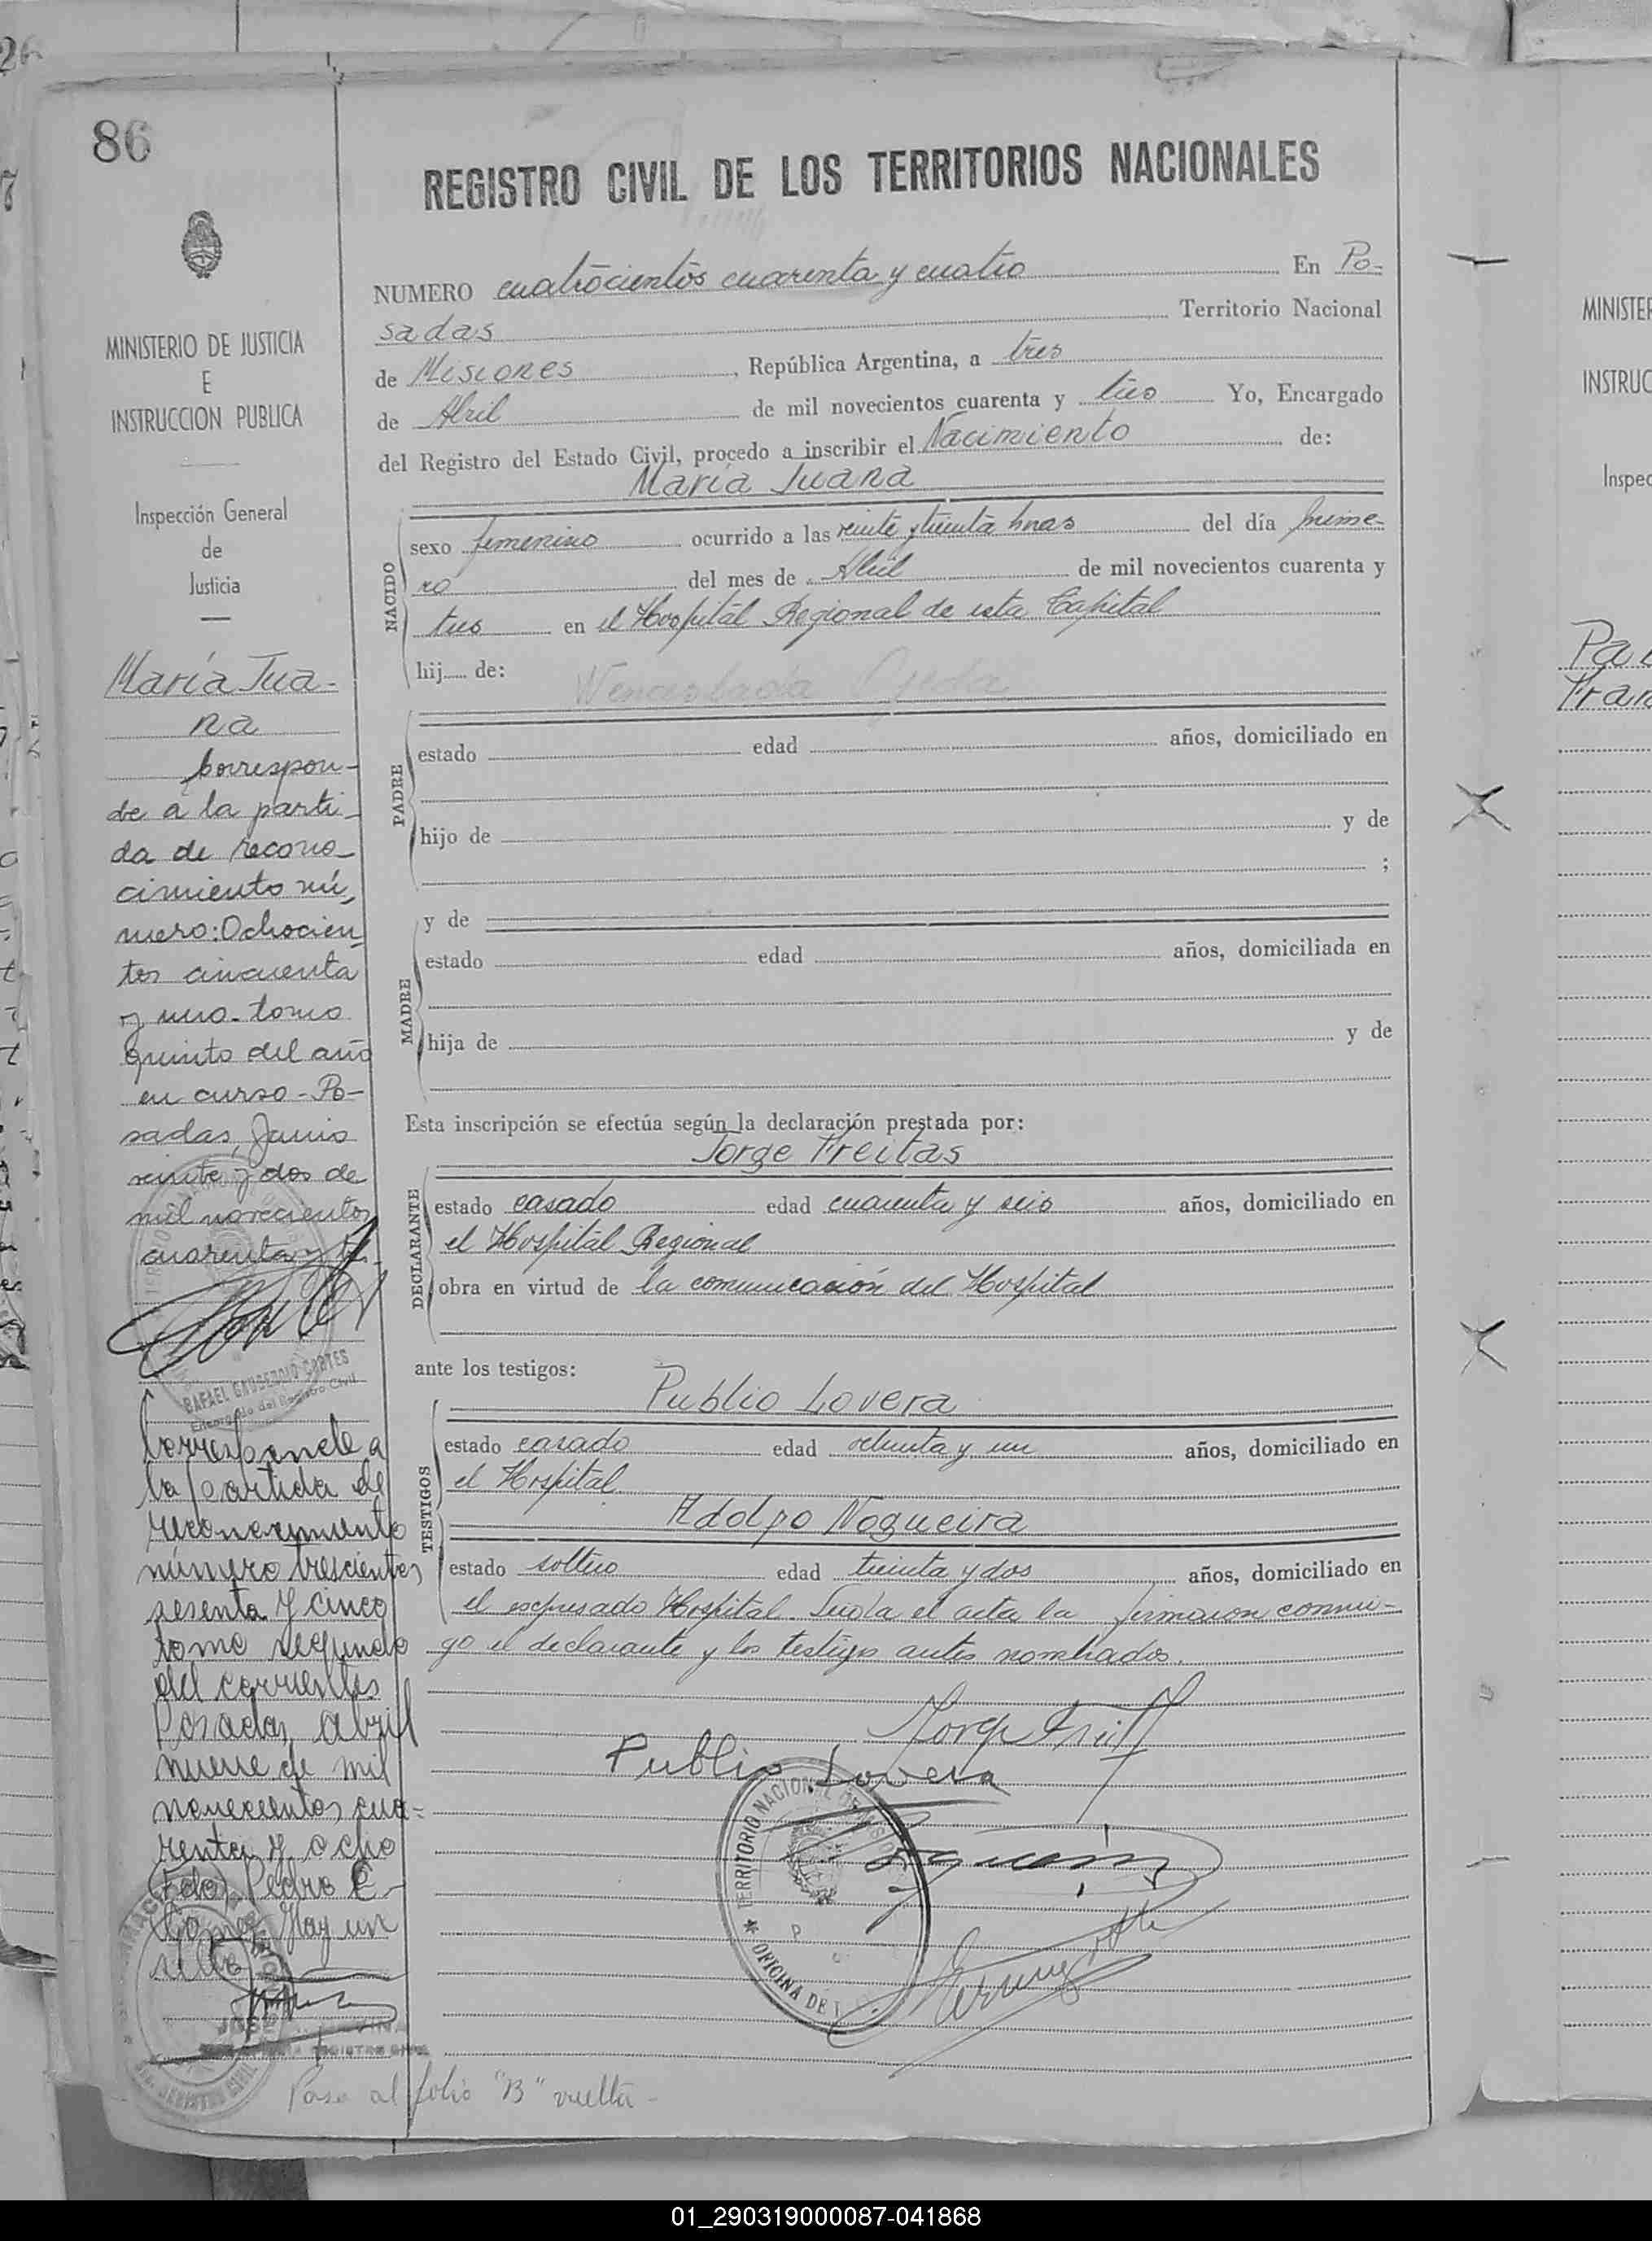 86
REGISTRO CIVIL DE LOS TERRITORIOS NACIONALES
MINISTERIO DE JUSTICIA
E
INSTRUCCION PUBLICA
Inspección General
de
Justicia
María Jua-
na
Correspon-
de a la parti-
da de recono-
cimiento nú-
mero: Ochocien-
tos cincuenta
y uno - tomo
quinto del año
en curso - Po-
sadas, Junio
veinte y dos de
mil novecientos
cuarenta y tres
RAFAEL GAUDENCIO CORTES
Encargado del Registro Civil
Corresponde a
la partida de
reconocimiento
número trescientos
sesenta y cinco
tomo segundo
del corriente
Posadas, abril
nueve de mil
novecientos cua-
renta y ocho
(Fdo) Pedro C.
Hay un
sello
NUMERO cuatrocientos cuarenta y cuatro En Po-
sadas Territorio Nacional
de Misiones, República Argentina, a tres
de Abril de mil novecientos cuarenta y tres Yo, Encargado
del Registro del Estado Civil, procedo a inscribir el Nacimiento de:
María Juana
NACIDO
sexo femenino ocurrido a las veinte y treinta horas del día prime-
ro del mes de Abril de mil novecientos cuarenta y
tres en el Hospital Regional de esta Capital
hij..... de: Wenceslada Ojeda
PADRE
estado edad años, domiciliado en
hijo de y de
;
MADRE
y de
estado edad años, domiciliada en
hija de y de
Esta inscripción se efectúa según la declaración prestada por:
Jorge Freitas
DECLARANTE
estado casado edad cuarenta y seis años, domiciliado en
el Hospital Regional
obra en virtud de la comunicación del Hospital
ante los testigos:
Publio Lovera
TESTIGOS
estado casado edad y un años, domiciliado en
el Hospital
Adolfo Nogueira
estado soltero edad treinta y dos años, domiciliado en
el expresado Hospital. Leida el acta la firmaron conmi-
go el declarante y los testigos antes nombrados.
Jorge Freitas
Publio Lovera
TERRITORIO NACIONAL DE MISIONES
OFICINA DE
Pasa al folio "B" vuelta -
MINISTER
INSTRUC
Inspec
01_290319000087-041868